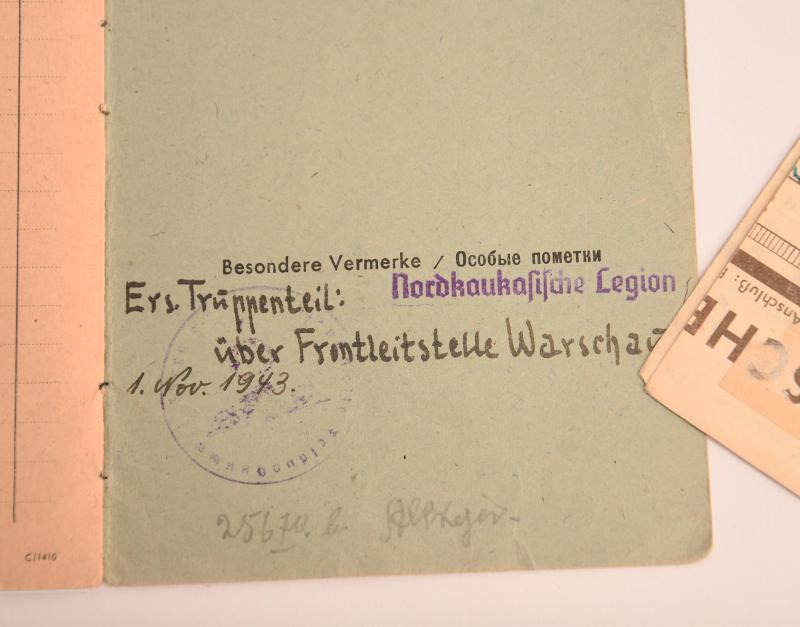 Besondere Vermerke / Особые пометки
Ers. Truppenteil: Nordkaukasische Legion
über Frontleitstelle Warschau
1. Nov. 1943.
25670. b.
C/1410
Anschluß:
SCHE